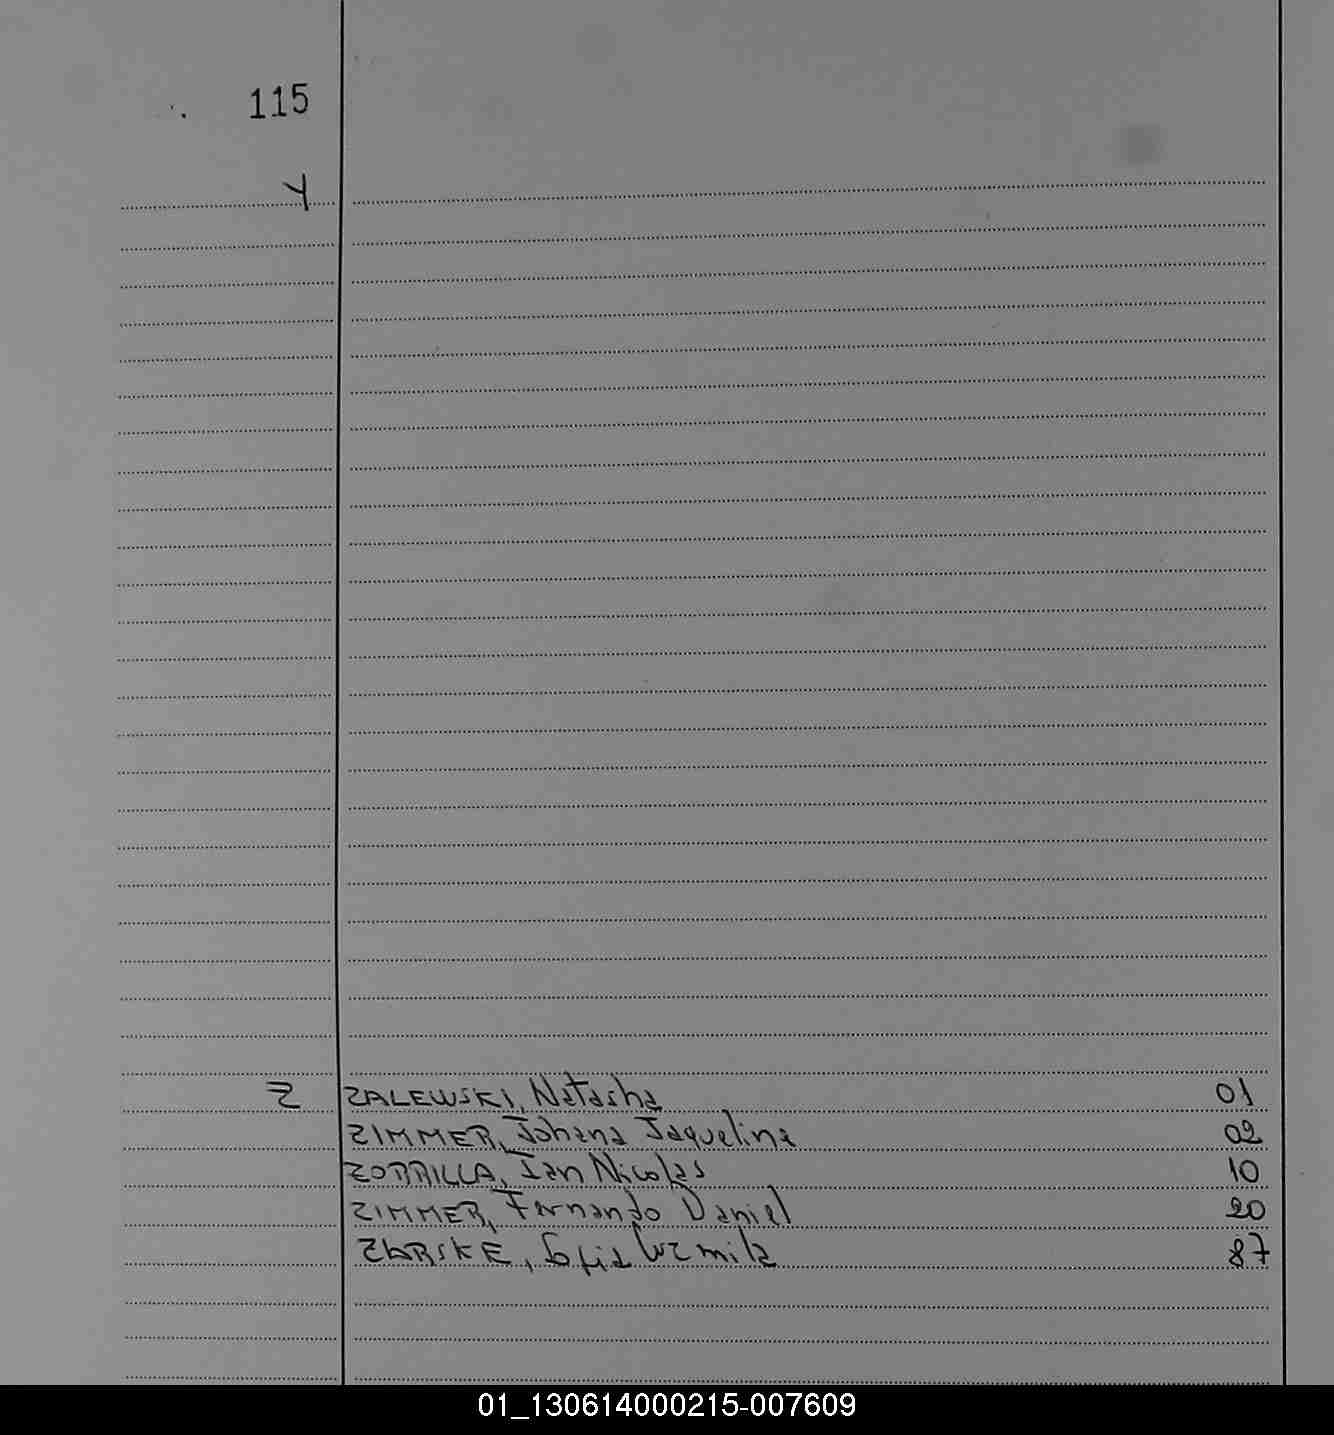 115
Y
Z ZALEWSKI, Natasha 01
ZIMMER, Johana Jaqueline 02
ZORRILLA, Ian Nicolas 10
ZIMMER, Fernando Daniel 20
Sofia Luzmila 87
01_130614000215-007609